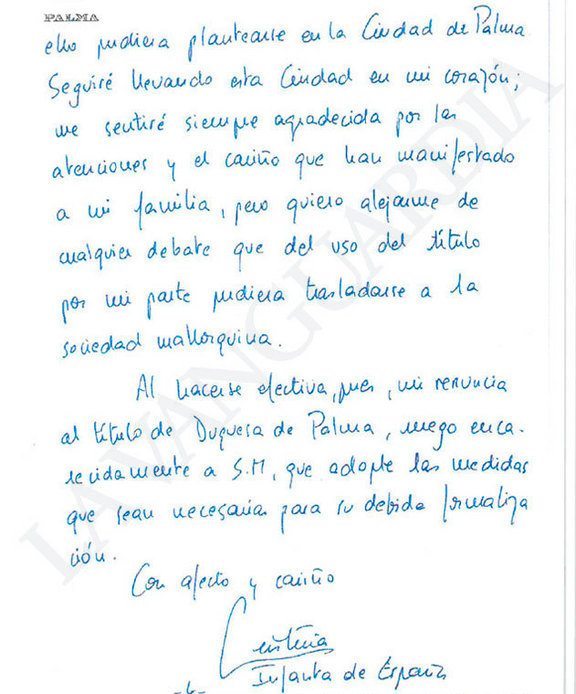 PALMA
ello pudiera plantearse en la Ciudad de Palma
Seguiré llevando esta Ciudad en mi corazón;
me sentiré siempre agradecida por las
atenciones y el cariño que han manifestado
a mi familia, pero quiero alejarme de
cualquier debate que del uso del título
por mi parte pudiera trasladarse a la
sociedad mallorquina.
Al hacerse efectiva, pues, mi renuncia
al título de Duquesa de Palma, ruego enca-
recidamente a S.M, que adopte las medidas
que sean necesarias para su debida formaliza
ción.
Con afecto y cariño
Cristina
Infanta de España
LA VANGUARDIA